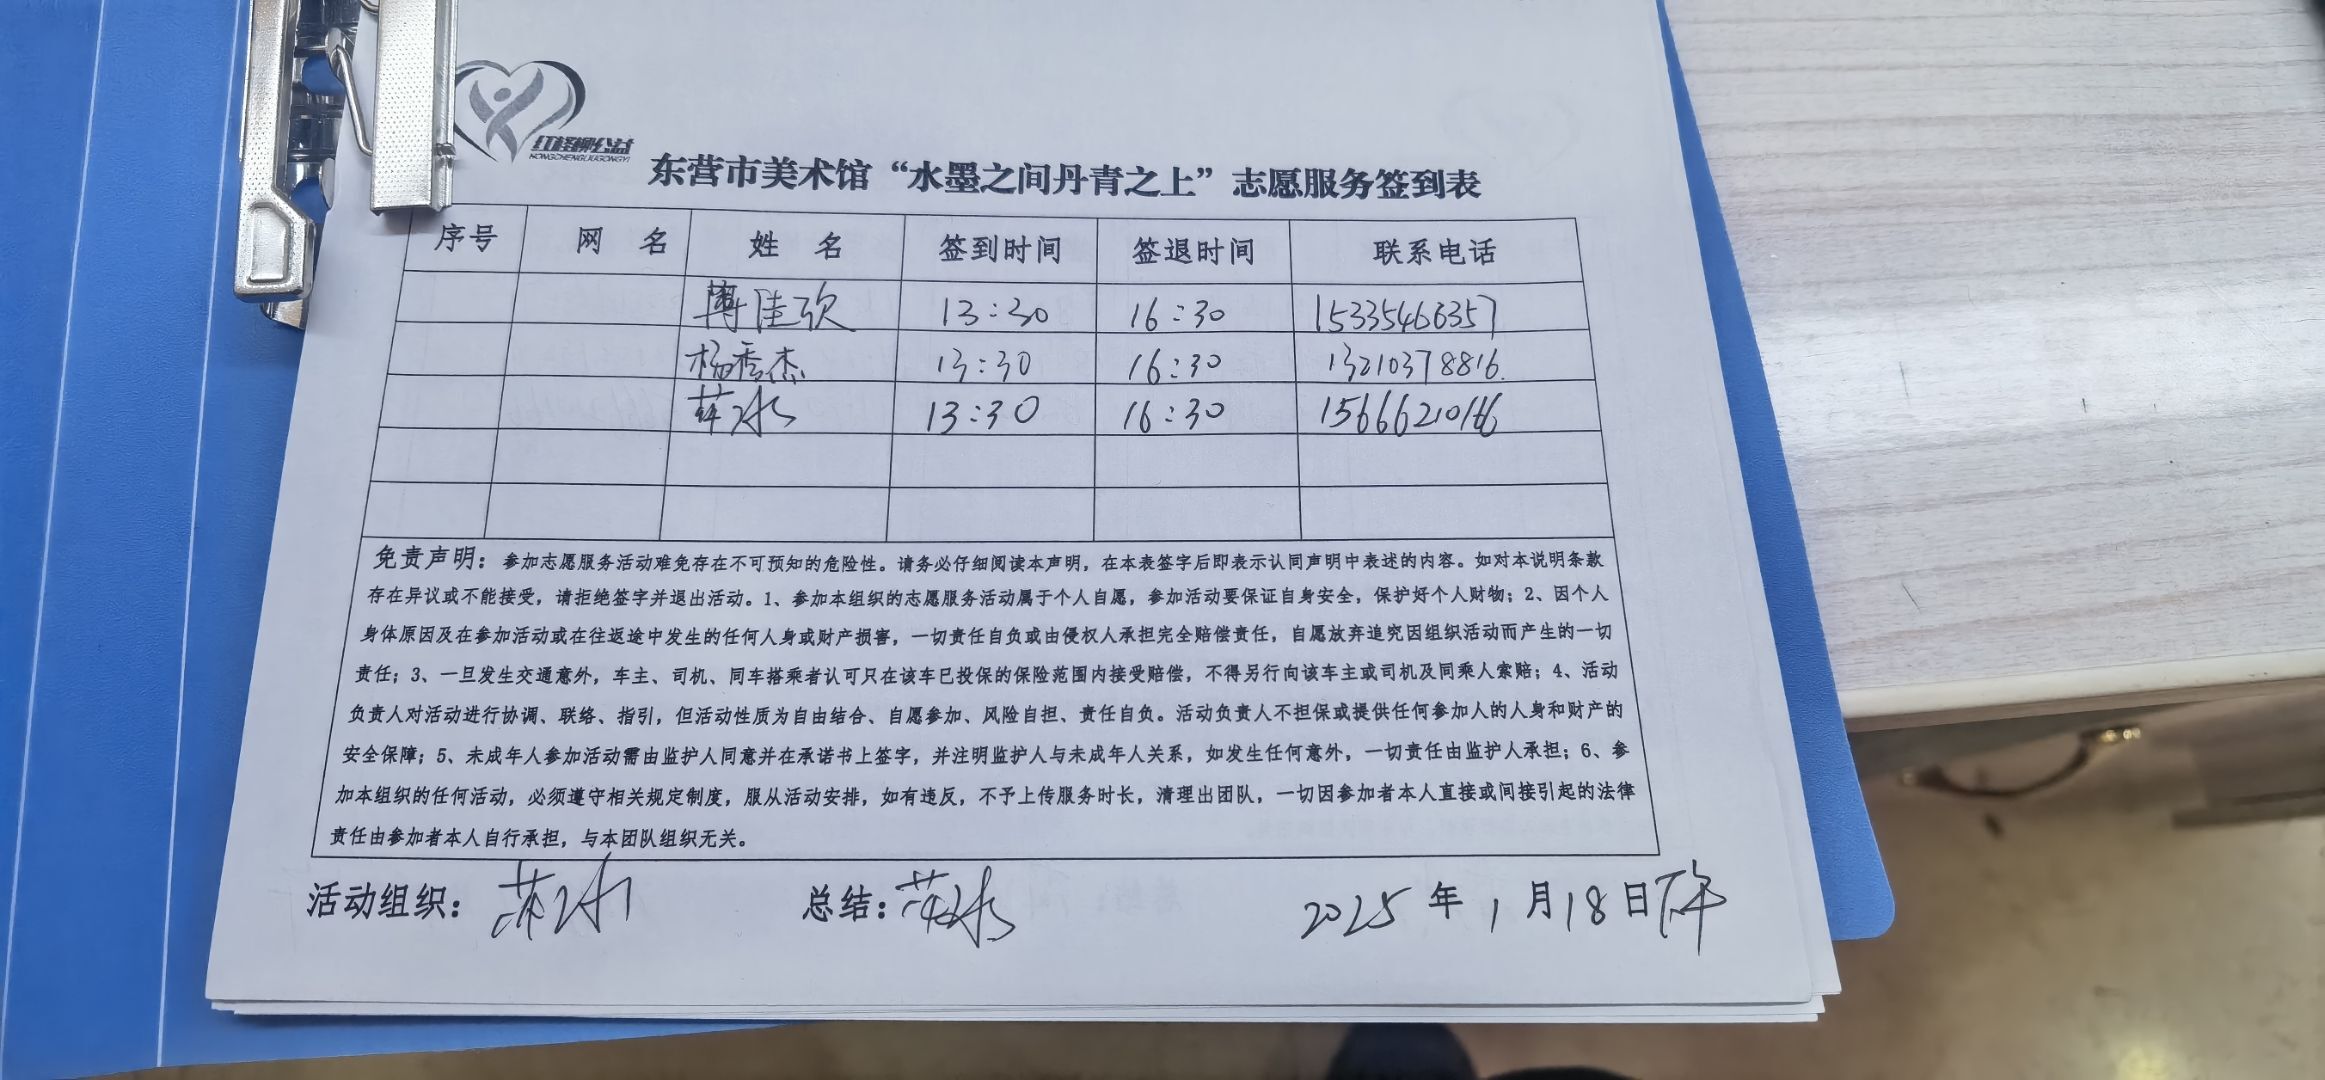 红柽柳公益
HONGCHENGLIUGONGYI
东营市美术馆“水墨之间丹青之上”志愿服务签到表
序号 网 名 姓 名 签到时间 签退时间 联系电话
佳欣 13:30 16:30 15335466357
杨秀杰 13:30 16:30 13210378816.
13:30 16:30 15666210166
免责声明：参加志愿服务活动难免存在不可预知的危险性。请务必仔细阅读本声明，在本表签字后即表示认同声明中表述的内容。如对本说明条款
存在异议或不能接受，请拒绝签字并退出活动。1、参加本组织的志愿服务活动属于个人自愿，参加活动要保证自身安全，保护好个人财物；2、因个人
身体原因及在参加活动或在往返途中发生的任何人身或财产损害，一切责任自负或由侵权人承担完全赔偿责任，自愿放弃追究因组织活动而产生的一切
责任；3、一旦发生交通意外，车主、司机、同车搭乘者认可只在该车已投保的保险范围内接受赔偿，不得另行向该车主或司机及同乘人索赔；4、活动
负责人对活动进行协调、联络、指引，但活动性质为自由结合、自愿参加、风险自担、责任自负。活动负责人不担保或提供任何参加人的人身和财产的
安全保障；5、未成年人参加活动需由监护人同意并在承诺书上签字，并注明监护人与未成年人关系，如发生任何意外，一切责任由监护人承担；6、参
加本组织的任何活动，必须遵守相关规定制度，服从活动安排，如有违反，不予上传服务时长，清理出团队，一切因参加者本人直接或间接引起的法律
责任由参加者本人自行承担，与本团队组织无关。
活动组织： 总结： 2025 年 1 月 18 日下午